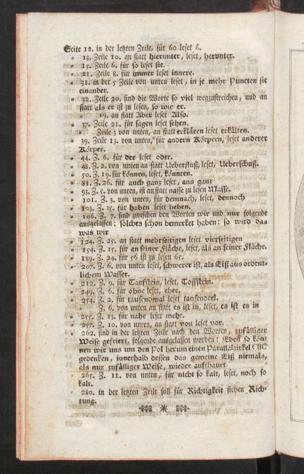 Seite 12. in der letzten Zeile, für 60 leset 6.
» 13. Zeile 10. an statt hierunter, leset, herunter.
» 15. Zeile 6. für so leset sie.
» 21. Zeile 8. für immer leset innere.
» 31. in der 5 Zeile von unten leset, in je mehr Puncten sie
einander.
» 32. Zeile 20. sind die Worte so viel wegzustreichen, und an
statt als er ist zu lesen, so wie er.
» 19. an statt Aber leset Also.
» 37. Zeile 21. für sagen leset sehen.
» Zeile 5 von unten, an statt erklären leset erkälten.
» 39. Zeile 13. von unten, für andern Körpern, leset anderer
Körper.
» 44. Z. 6. für der leset oder.
» 48. Z. 2. von unten an statt Ueberfluß, leset, Ueberschuß.
» 50. Z. 19. für können, leset, könnten.
» 81. Z. 26. für auch ganz leset, aus ganz
» 93. Z. 5. von unten, ist an statt nasse zu lesen Masse.
» 101. Z. 9. von unten, für demnach, leset, dennoch
» 103. Z. 15. für haben leset heben.
» 106. Z. 7. sind zwischen den Worten wir und nur folgende
ausgelassen: solches schon bemerket haben: so wird das
was wir
» 124. Z. 25. an statt mehrseitigen leset vierseitigen
» 159. Z. 15. für an seiner Fläche, leset, als an seiner Fläche.
» 189. Z. 24. für 56 ist zu lesen 6.
» 207. Z. 6. von unten leset, schwerer ist, als Eiß aus ordent-
lichem Wasser.
» 212. Z. 9. für Taufstein, leset, Toffstein.
» 249. Z. 6. für ohne leset, ohr.
» 254. Z. 2. für tausendmal leset tausendtel.
» Z. 6. von unten an statt es ist in, leset, es ist es in
» 255. Z. 13. für nahe leset mehr.
» 257. Z. 10. von unten, an statt von leset vor.
» 262. sind in der letzten Zeile nach den Worten, zufälliger
Weise gefriert, folgende ausgelassen worden: Eben so kön-
nen wir uns um den Pol herum einen Parallelzirkel
gedenken, innerhalb dessen das gemeine Eiß niemals,
als nur zufälliger Weise, wieder aufthauet.
» 265. Z. 11. von unten, für nicht so kalt, leset, noch so
kalt.
» 280. in der letzten Zeile soll für Richtigkeit stehen Rich-
tung.